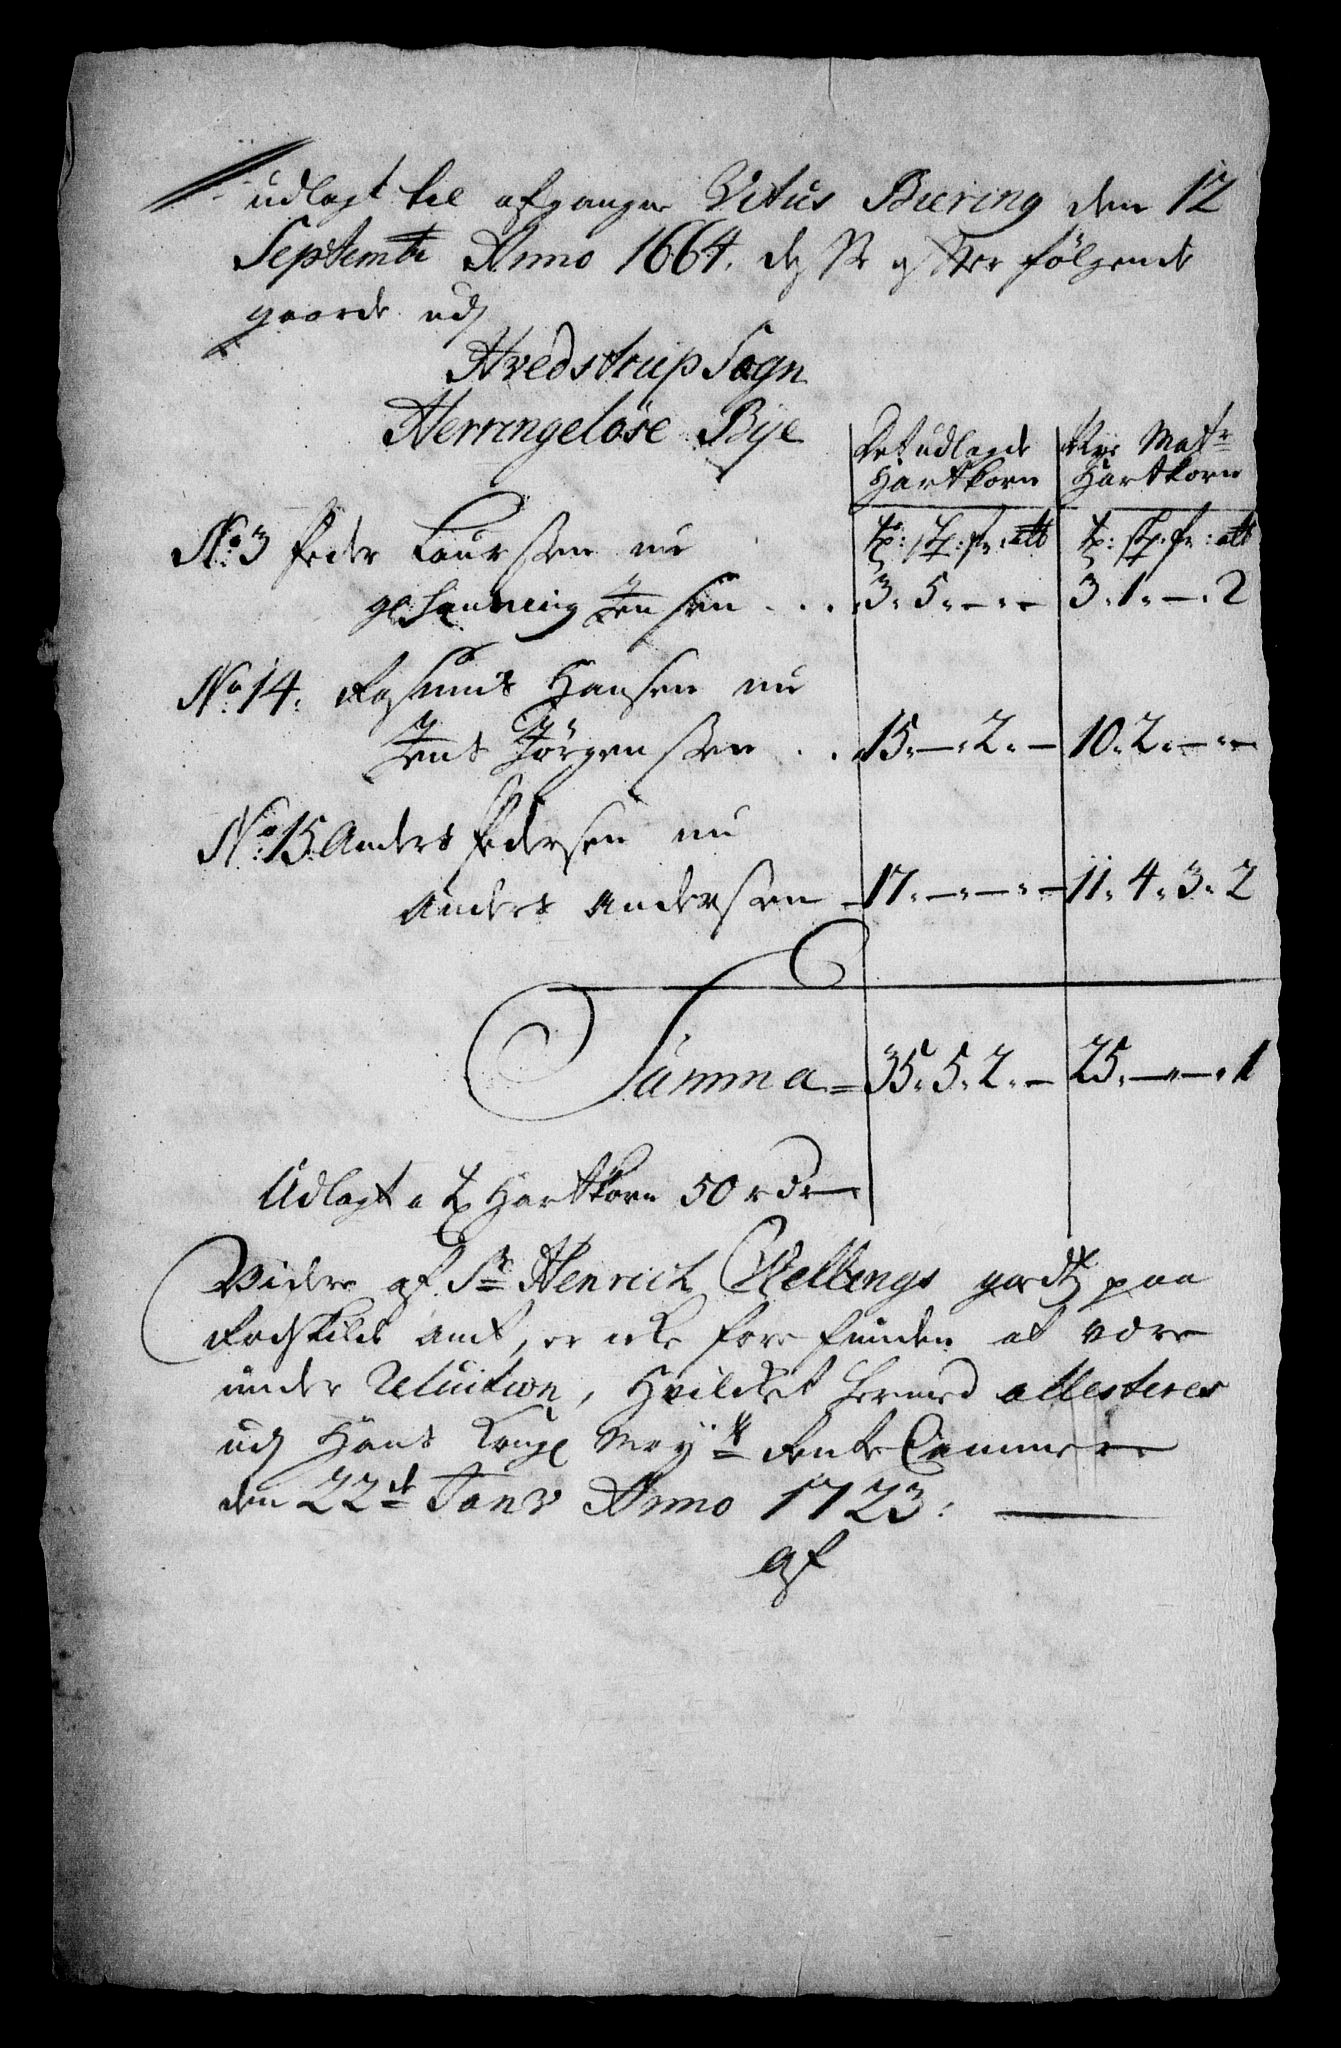 udlagt til afgangne Vitus Biering den 12
Septembr Anno 1664. disse efter følgende
gaarde udj
Hvedstrup Sogn
Herringeløse Bÿe
Det udlagde Hartkorn | Nye Matr Hartkorn
No 3 Peder Laurssen nu | td: skp: fr: alb | td: skp: fr: alb
Henning Jensen . . . 3. 5. —. — | 3. 1. —. 2
No 14. Rasmus Hansen nu
Jens Jørgenssen . . 15. —. 2. — | 10. 2. —. —
No 15. Anders Pedersen nu
Anders Anderssen — 17. —. —. — | 11. 4. 3. 2
Summa = 35. 5. 2. — | 25. —. —. 1
Udlagt a td Hartkorn 50 rdr
Videre af Sr Henrich Wellings godtz paa
Rodskilde Amt, er icke forefunden at være
under Reluition, Hvilcket hermed attesteres
udj Hans Kongl May:tz Rente Cammer
den 22de Janv Anno 1723. —
af